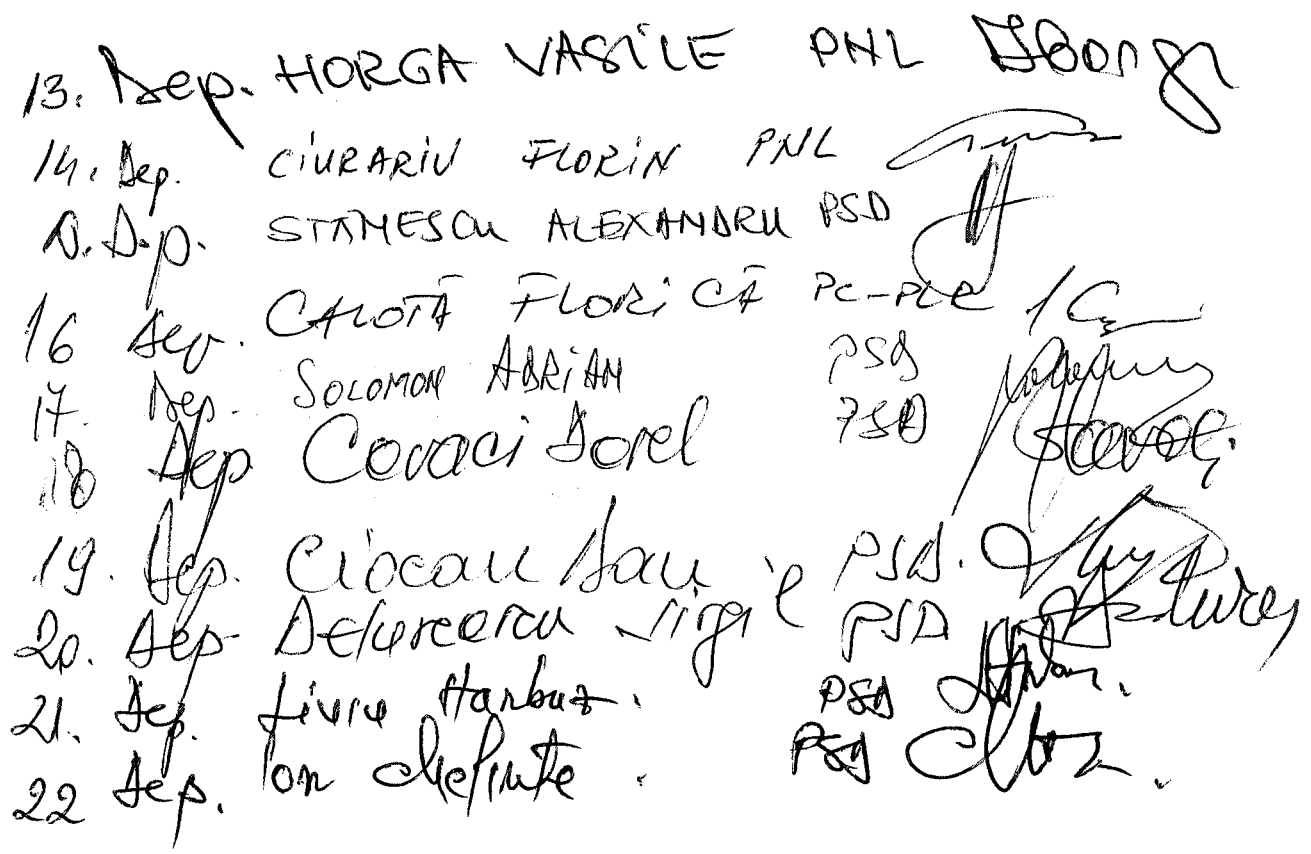 13. Dep. HORGA VASILE PNL
14. Dep. CIURARIU FLORIN PNL
Dep. STĂNESCU ALEXANDRU PSD
16 Dep. CALOTĂ FLORICĂ PC-PLR
17. Dep. SOLOMON ADRIAN PSD
18 Dep Covaci Dorel PSD
19. Dep. Ciocan Dan PSD.
20. Dep Virgil PSD
21. Dep. Liviu Harbuz. PSD
22 Dep. Ion PSD